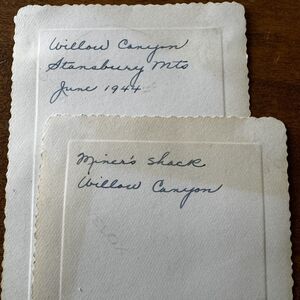 Willow Canyon
Stansbury Mts
June 1944
Miner's shack
Willow Canyon